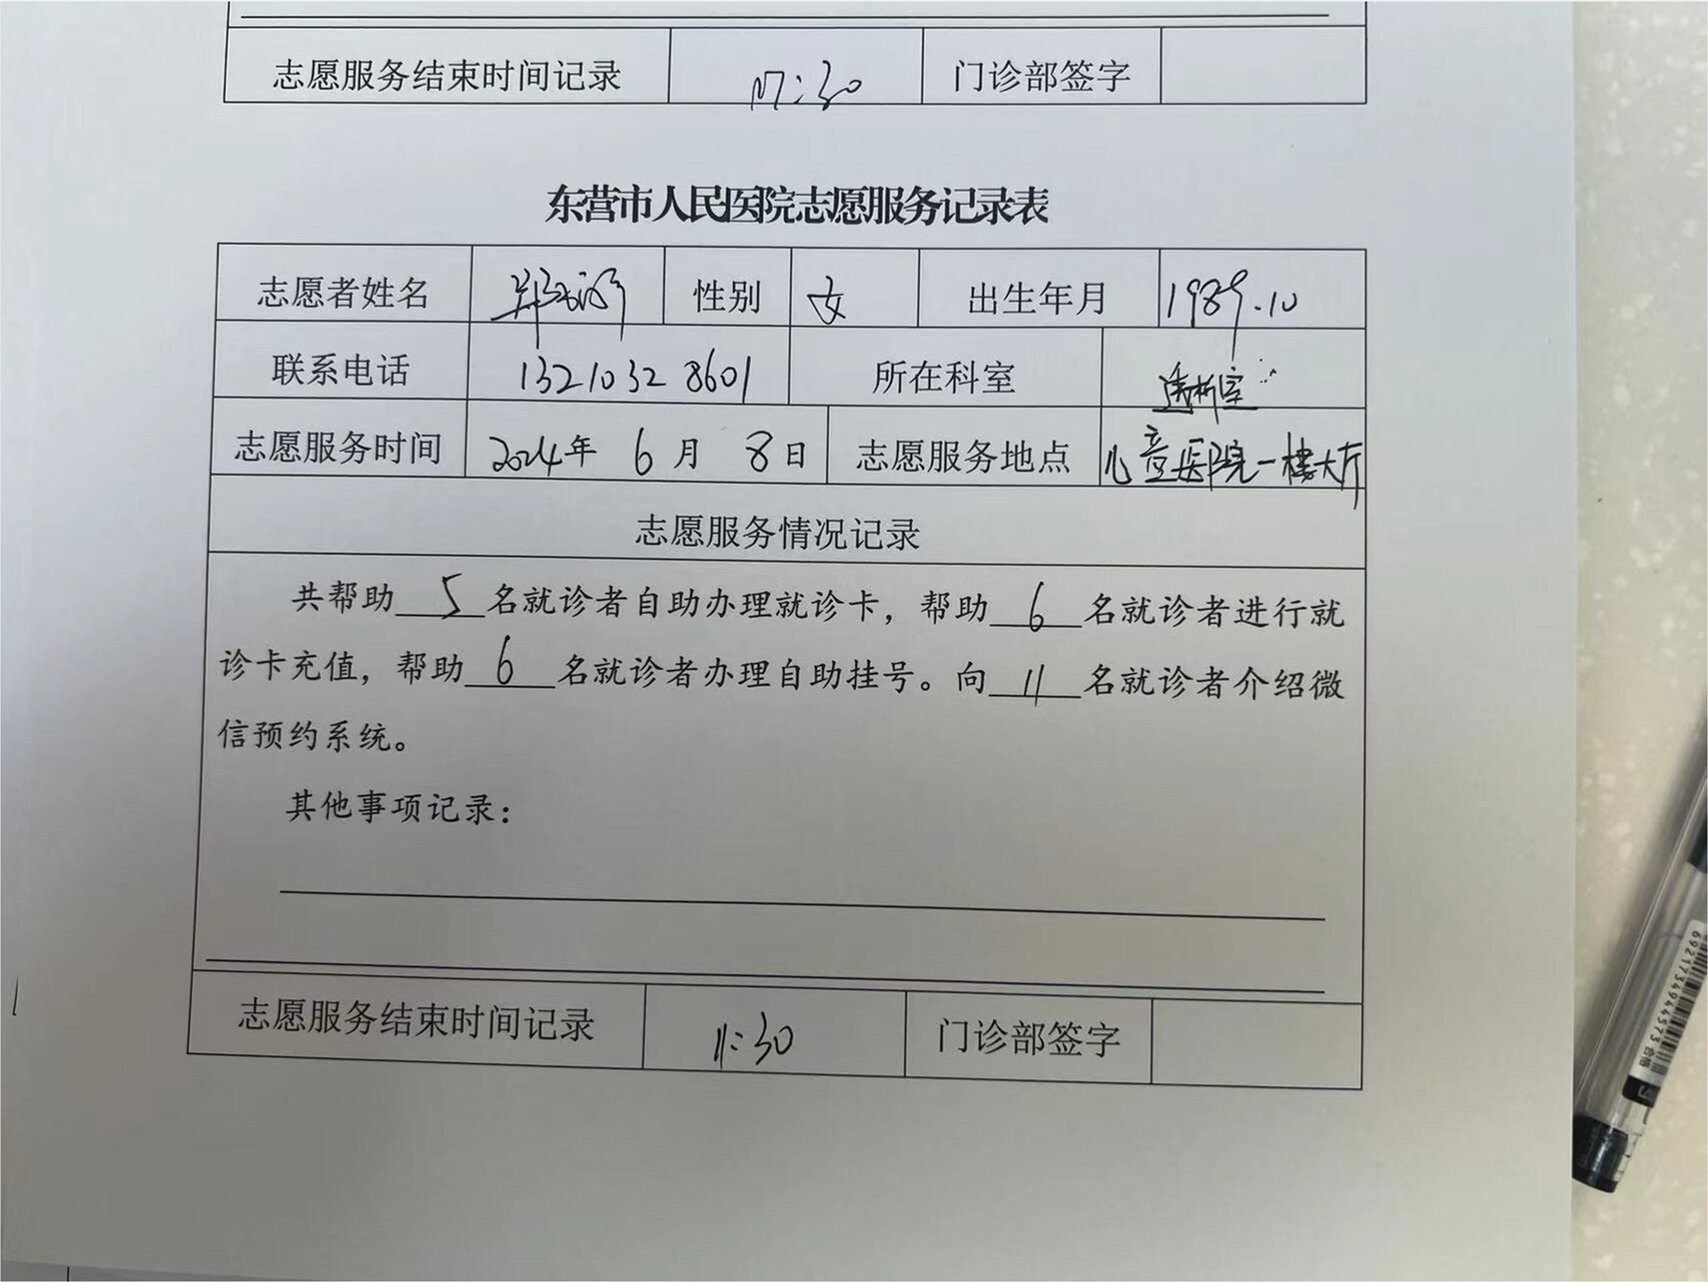 志愿服务结束时间记录 17:30 门诊部签字
东营市人民医院志愿服务记录表
志愿者姓名 性别 女 出生年月 1989.10
联系电话 13210328601 所在科室 透析室
志愿服务时间 2024年 6月 8日 志愿服务地点 儿童医院一楼大厅
志愿服务情况记录
共帮助 5 名就诊者自助办理就诊卡，帮助 6 名就诊者进行就
诊卡充值，帮助 6 名就诊者办理自助挂号。向 11 名就诊者介绍微
信预约系统。
其他事项记录：
志愿服务结束时间记录 11:30 门诊部签字
6921734944573 合格